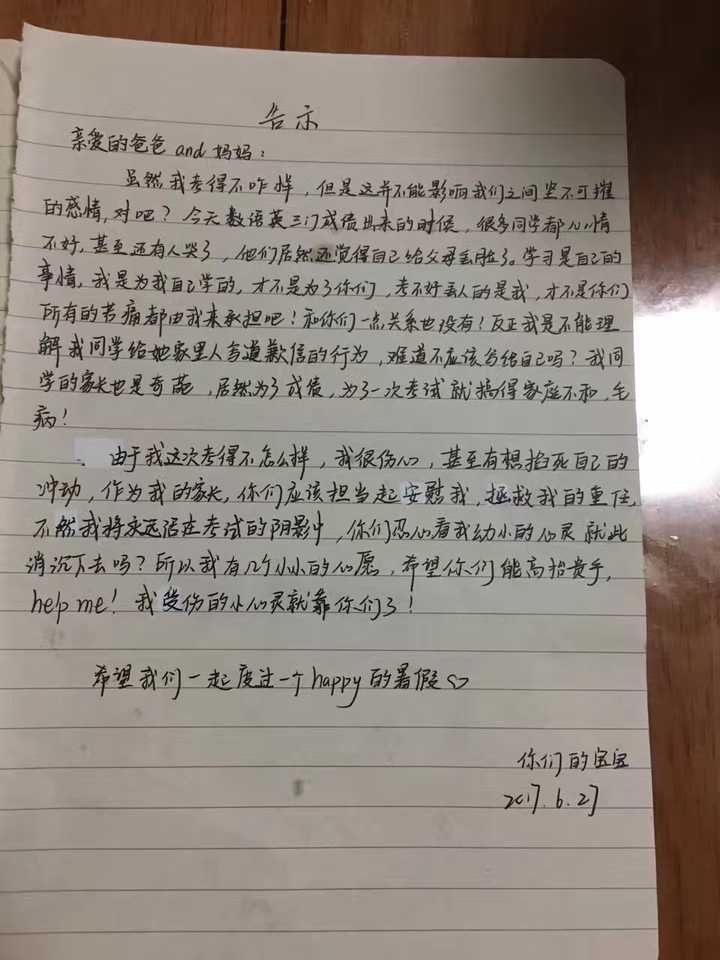 告示
亲爱的爸爸and妈妈：
虽然我考得不咋样，但是这并不能影响我们之间坚不可摧
的感情，对吧？今天数语英三门成绩出来的时候，很多同学都心情
不好，甚至还有人哭了，他们居然还觉得自己给父母丢脸了。学习是自己的
事情，我是为我自己学的，才不是为了你们，考不好丢人的是我，才不是你们
所有的苦痛都由我来承担吧！和你们一点关系也没有！反正我是不能理
解我同学给她家里人写道歉信的行为，难道不应该写给自己吗？我同
学的家长也是奇葩，居然为了成绩，为了一次考试就搞得家庭不和，毛
病！
由于我这次考得不怎么样，我很伤心，甚至有想掐死自己的
冲动，作为我的家长，你们应该担当起安慰我，拯救我的重任，
不然我将永远活在考试的阴影中，你们忍心看我幼小的心灵就此
消沉下去吗？所以我有几个小小的心愿，希望你们能高抬贵手，
help me！我受伤的小心灵就靠你们了！
希望我们一起度过一个happy的暑假♡
你们的宝宝
2017.6.27